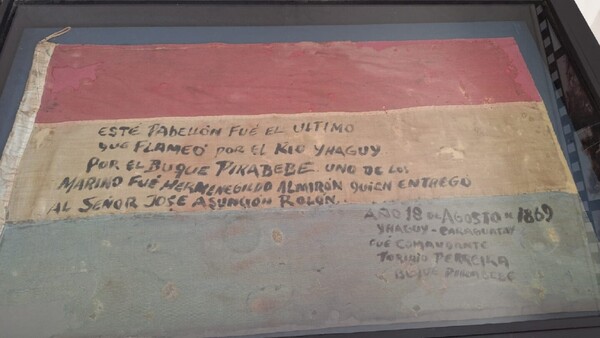 ESTÉ PABELLÓN FUÉ EL ULTIMO
QUE FLAMEÓ POR EL RIO YHAGUY
POR EL BUQUE PIRABEBE. UNO DE LOS
MARINO FUÉ HERMENEGILDO ALMIRÓN QUIEN ENTREGO
AL SEÑOR JOSE ASUNCIÓN ROLON......
AÑO 18 DE AGOSTO DE 1869
YHAGUY - CARAGUATAY
FUÉ COMANDANTE
TORIBIO PERREIRA
BUQUE PIRABEBE